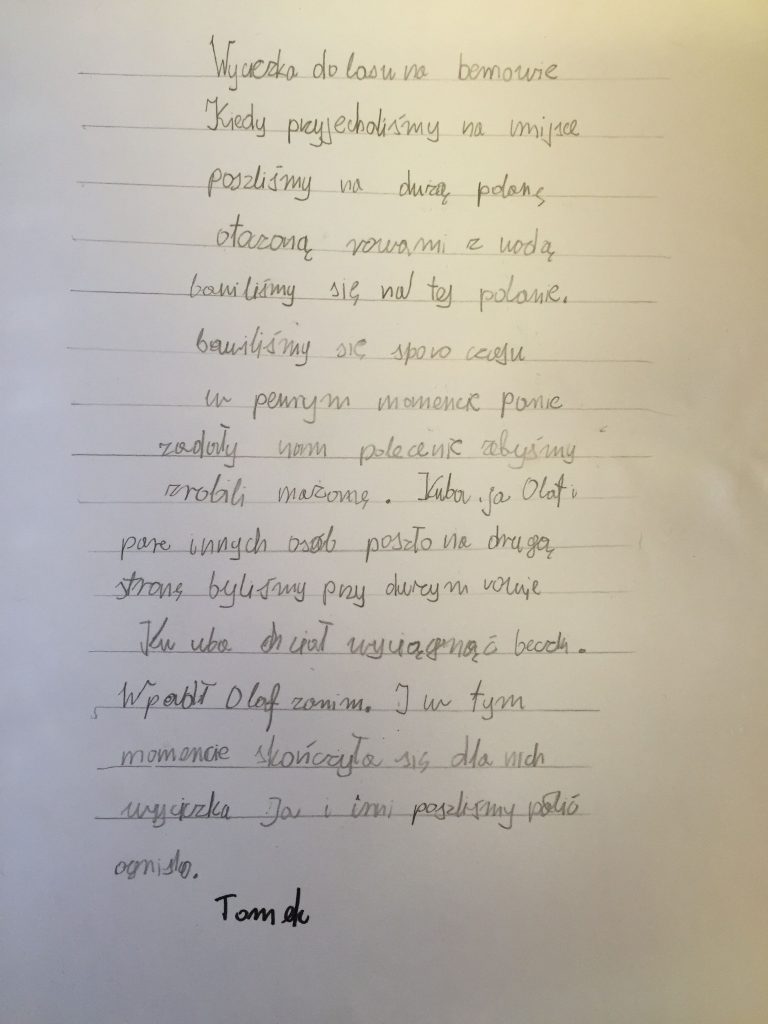 Wycieczka do lasu na bemowie
Kiedy przyjechaliśmy na miejsce
poszliśmy na dużą polanę
otoczoną rowami z wodą
bawiliśmy się na tej polanie.
bawiliśmy się sporo czasu
w pewnym momencie panie
zadały nam polecenie żebyśmy
zrobili marzannę. Kuba ja Olaf i
parę innych osób poszło na drugą
stronę byliśmy przy dużym rowie
Ku uba chciał wyciągnąć
Wpadł Olaf zanim. I w tym
momencie skończyła się dla nich
wycieczka Ja i inni poszliśmy palić
ognisko.
Tomek